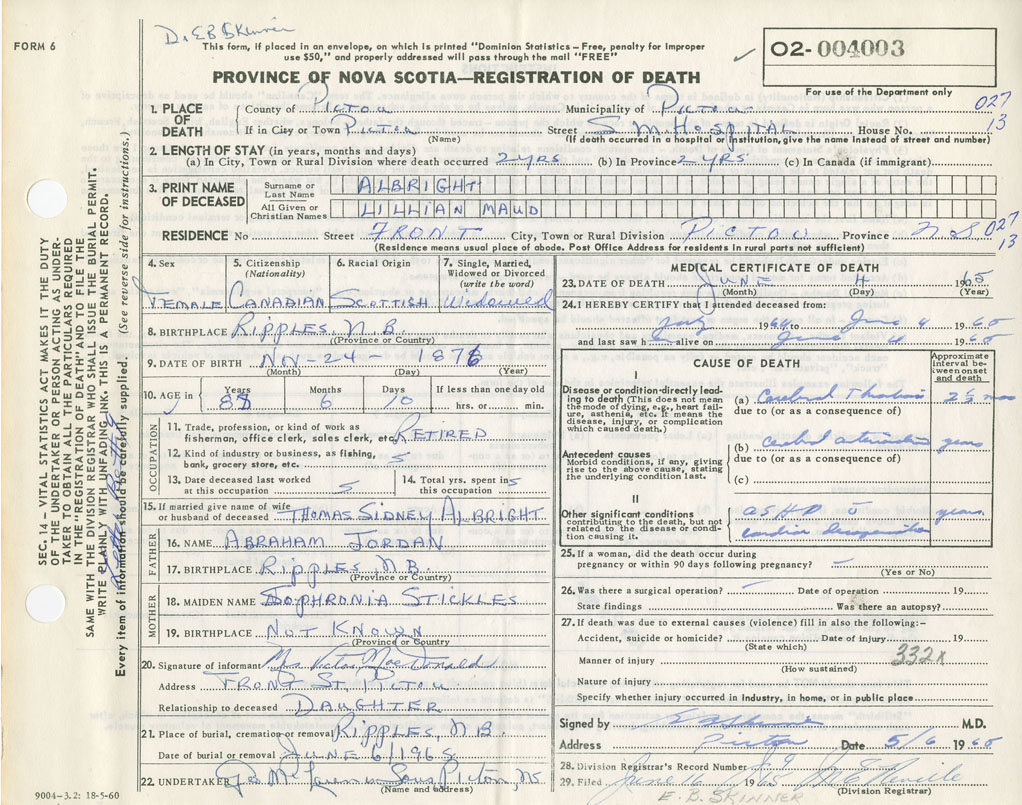 Dr EB Skinner
FORM 6
This form, if placed in an envelope, on which is printed "Dominion Statistics – Free, penalty for improper
use $50," and properly addressed will pass through the mail "FREE"
02-004003
For use of the Department only
PROVINCE OF NOVA SCOTIA—REGISTRATION OF DEATH
027
13
1. PLACE OF DEATH
County of Pictou Municipality of Pictou
If in City or Town Pictou Street S. M. Hospital House No.
(Name) (If death occurred in a hospital or institution, give the name instead of street and number)
2. LENGTH OF STAY (in years, months and days)
(a) In City, Town or Rural Division where death occurred 2 yrs (b) In Province 2 yrs (c) In Canada (if immigrant)
3. PRINT NAME OF DECEASED
Surname or Last Name ALBRIGHT
All Given or Christian Names LILLIAN MAUD
RESIDENCE No Street FRONT City, Town or Rural Division PICTOU Province N S
027
13
(Residence means usual place of abode. Post Office Address for residents in rural parts not sufficient)
4. Sex 5. Citizenship (Nationality) 6. Racial Origin 7. Single, Married, Widowed or Divorced (write the word)
Female Canadian Scottish Widowed
8. BIRTHPLACE Ripples, N.B.
(Province or Country)
9. DATE OF BIRTH Nov - 24 - 1876
(Month) (Day) (Year)
10. AGE in Years Months Days If less than one day old
88 6 10 hrs. or min.
OCCUPATION
11. Trade, profession, or kind of work as
fisherman, office clerk, sales clerk, etc. Retired
12. Kind of industry or business, as fishing,
bank, grocery store, etc.
13. Date deceased last worked
at this occupation
14. Total yrs. spent in
this occupation
15. If married give name of wife
or husband of deceased Thomas Sidney Albright
FATHER
16. NAME Abraham Jordan
17. BIRTHPLACE Ripples N B.
(Province or Country)
MOTHER
18. MAIDEN NAME Sophronia Stickles
19. BIRTHPLACE Not Known
(Province or Country
20. Signature of informant Mrs Victor MacDonald
Address Front St, Pictou
Relationship to deceased Daughter
21. Place of burial, cremation or removal Ripples, N B.
Date of burial or removal June 6/1965
22. UNDERTAKER Sons Pictou NS
(Name and address)
9004-3.2: 18-5-60
SEC. 14 – VITAL STATISTICS ACT MAKES IT THE DUTY
OF THE UNDERTAKER OR PERSON ACTING AS UNDER-
TAKER TO OBTAIN ALL THE PARTICULARS REQUIRED
IN THE "REGISTRATION OF DEATH" AND TO FILE THE
SAME WITH THE DIVISION REGISTRAR WHO SHALL ISSUE THE BURIAL PERMIT.
WRITE PLAINLY WITH UNFADING INK. THIS IS A PERMANENT RECORD.
Every item of information should be carefully supplied. (See reverse side for instructions.)
MEDICAL CERTIFICATE OF DEATH
23. DATE OF DEATH June 4 1965
(Month) (Day) (Year)
24. I HEREBY CERTIFY that I attended deceased from:
July 1964 to June 4 1965
and last saw h alive on June 4 1965
CAUSE OF DEATH
Approximate interval between onset and death
I
Disease or condition directly lead-
ing to death (This does not mean
the mode of dying, e.g., heart fail-
ure, asthenia, etc. It means the
disease, injury, or complication
which caused death.)
(a) Cerebral
due to (or as a consequence of)
(b) years
due to (or as a consequence of)
(c)
Antecedent causes
Morbid conditions, if any, giving
rise to the above cause, stating
the underlying condition last.
II
Other significant conditions
contributing to the death, but not
related to the disease or condi-
tion causing it.
ASHD years
cardiac
25. If a woman, did the death occur during
pregnancy or within 90 days following pregnancy?
(Yes or No)
26. Was there a surgical operation? – Date of operation 19
State findings Was there an autopsy?
27. If death was due to external causes (violence) fill in also the following:–
Accident, suicide or homicide? Date of injury 19
(State which)
332X
Manner of injury
(How sustained)
Nature of injury
Specify whether injury occurred in industry, in home, or in public place
Signed by EBSkinner M.D.
Address Pictou Date 5/6 1965
28. Division Registrar's Record Number
29. Filed June 16 1965
(Division Registrar)
E. B. SKINNER